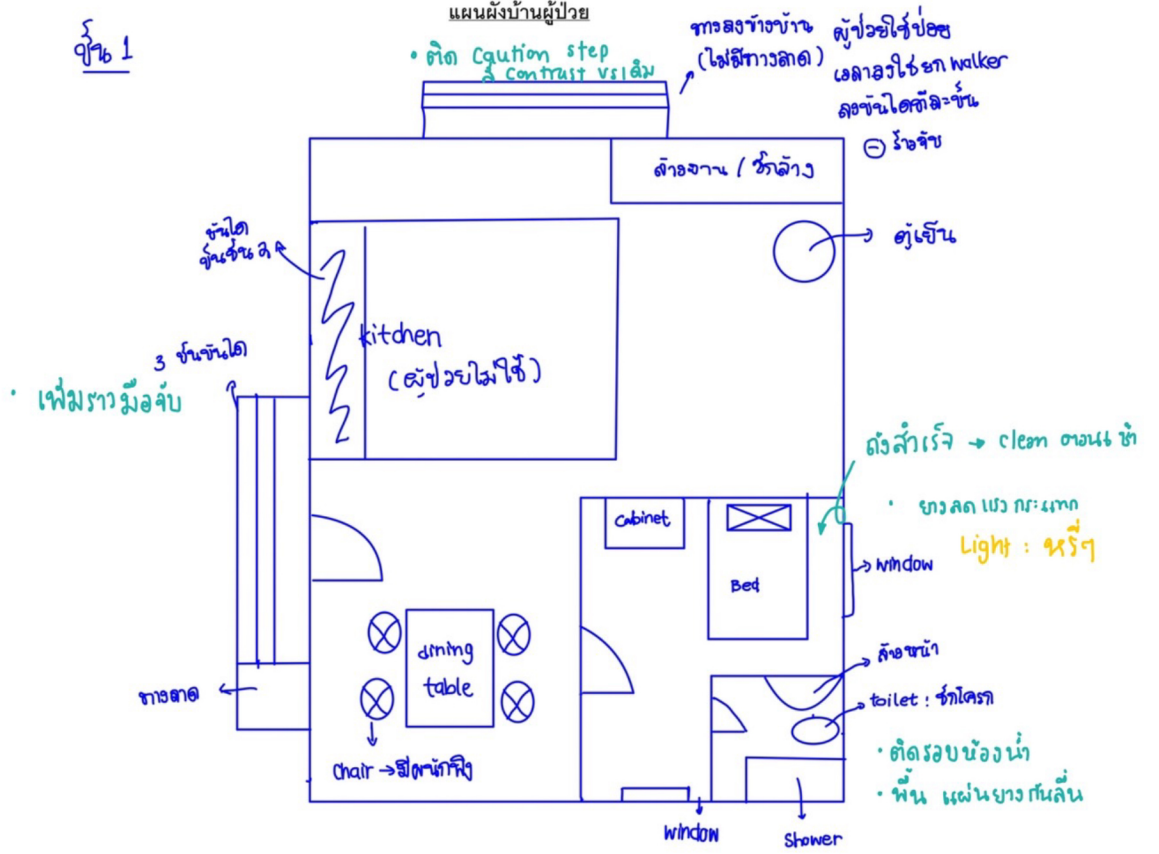 แผนผังบ้านผู้ป่วย
ชั้น 1
• ติด Caution step
สี Contrast vs เดิม
ทางลงข้างบ้าน
(ไม่มีทางลาด)
ผู้ป่วยใช้บ่อย
เวลาลงใช้ยก walker
ลงบันไดทีละขั้น
⊖ ราวจับ
ล้างจาน / ซักล้าง
ตู้เย็น
บันได
ขึ้นชั้น 2
kitchen
(ผู้ป่วยไม่ใช้)
3 ขั้นบันได
• เพิ่มราวมือจับ
ถังสำเร็จ → clean ตอนเช้า
• ยางลดแรงกระแทก
Light : หรี่ๆ
Cabinet
Bed
window
dining
table
ล้างหน้า
toilet : ชักโครก
ทางลาด
Chair → มีพนักพิง
• ติดรอบห้องน้ำ
• พื้น แผ่นยางกันลื่น
window
Shower